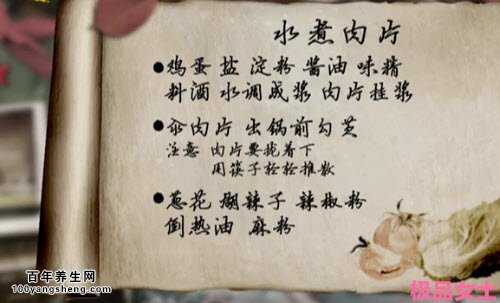 水煮肉片
鸡蛋 盐 淀粉 酱油 味精
料酒 水调成浆 肉片挂浆
汆肉片 出锅前勾芡
注意 肉片要挑着下
用筷子轻轻推散
葱花 煳辣子 辣椒粉
倒热油 麻粉
百年养生网
100yangsheng.com
极品女士